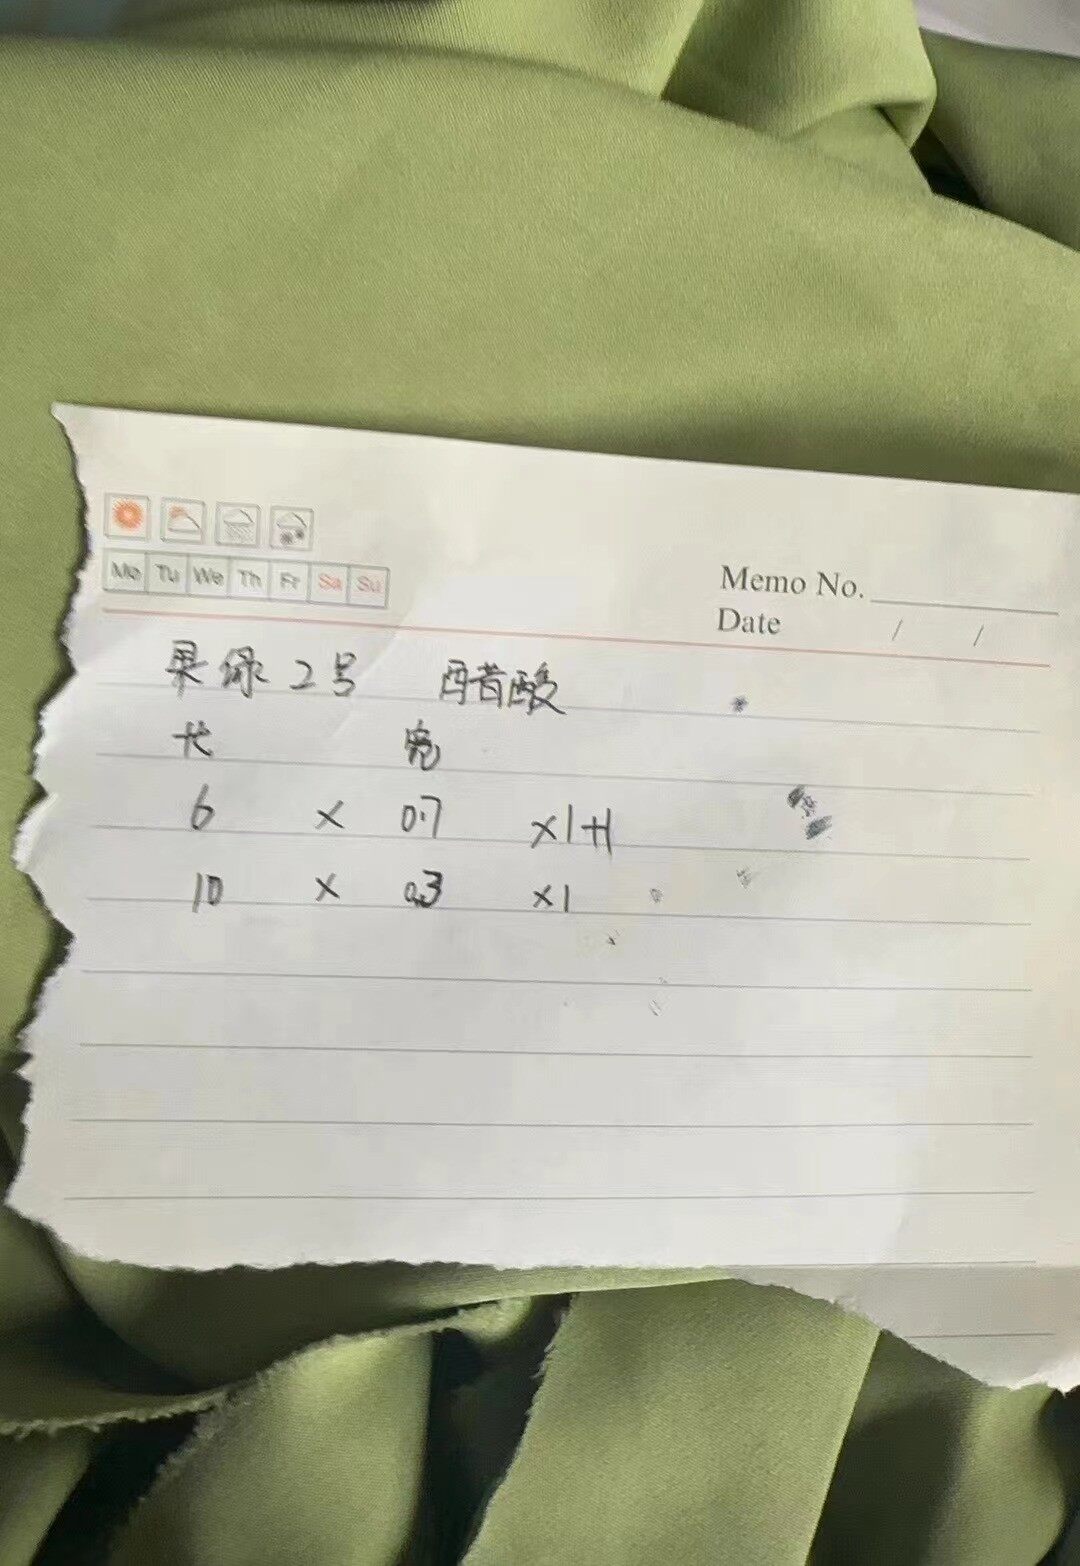 Mo Tu We Th Fr Sa Su
Memo No.
Date / /
果绿 2号 醋酸
长 宽
6 × 0.7 ×1+1
10 × 0.3 ×1